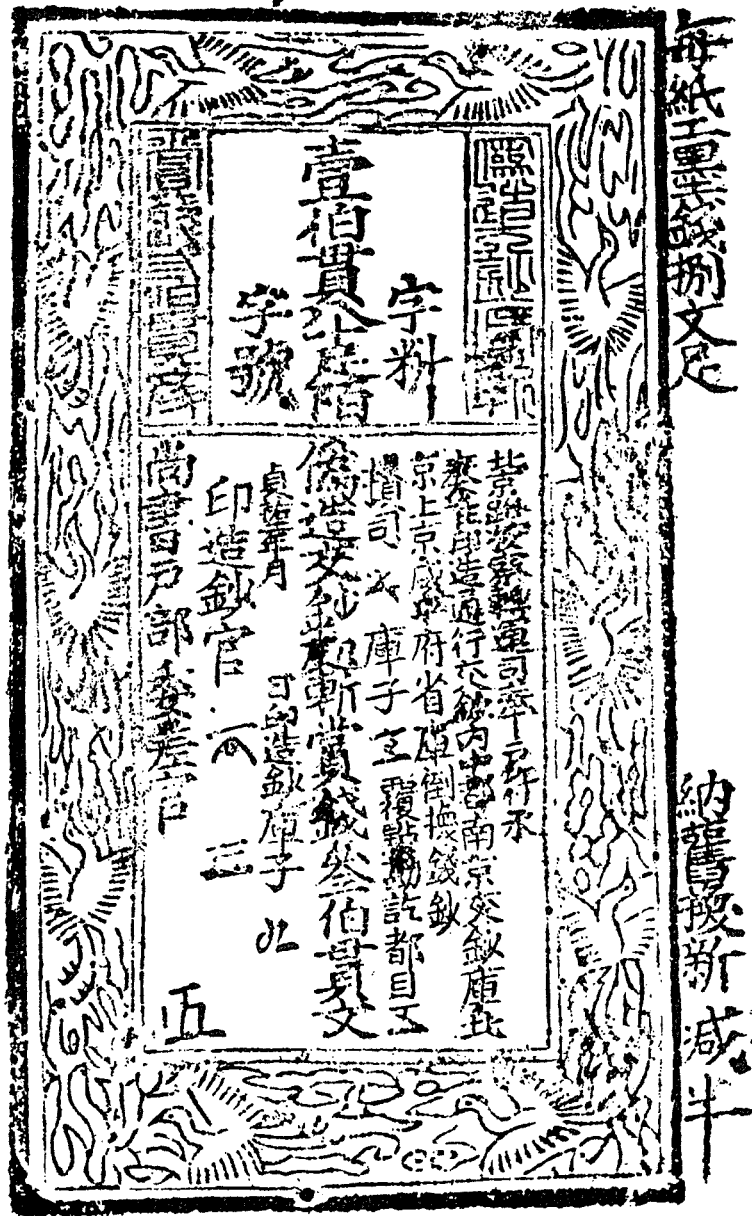 每紙工墨錢捌文足
納舊換新減半
偽造交鈔者斬
字料
壹伯貫八十足陌
字號
賞錢叁伯貫文
轉運司
奏准印造通行交鈔內中都南京交鈔庫北
京上京咸平府省庫倒換錢鈔
攢司 庫子 覆點勘訖都目
偽造交鈔者斬賞錢叁伯貫文
貞祐年月 日印造鈔庫子
印造鈔官
尚書戶部委差官
五